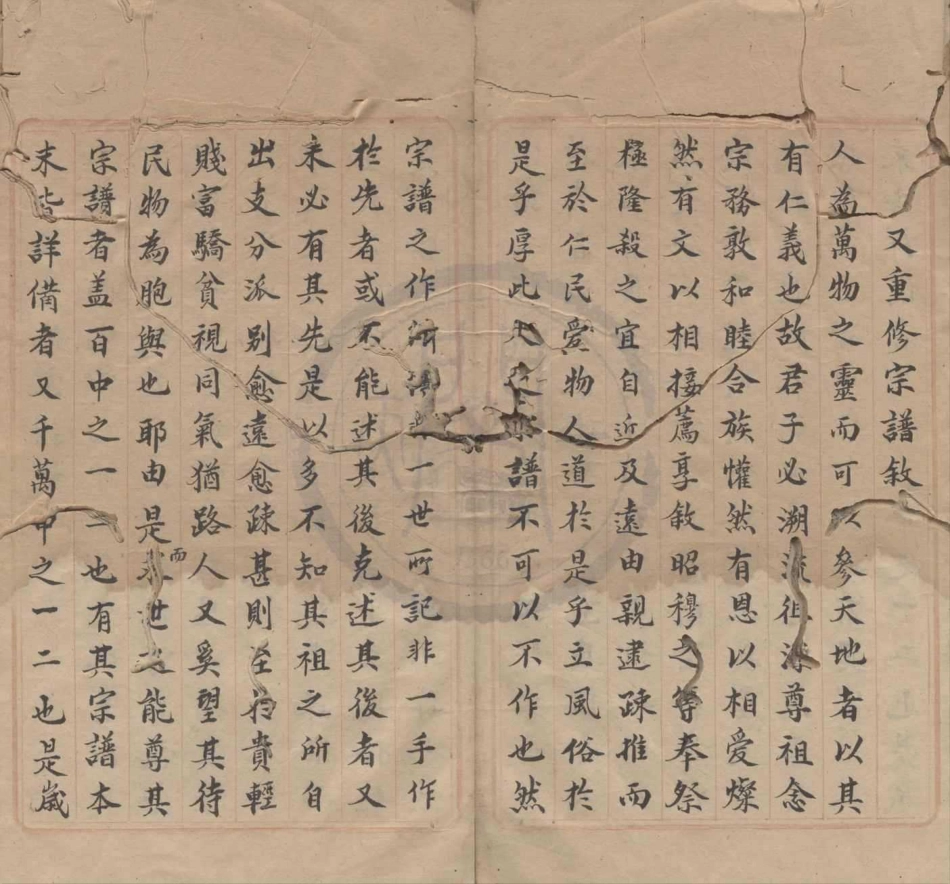 又重修宗譜敘
人益萬物之靈而可以參天地者以其
有仁義也故君子必溯流徂源尊祖念
宗務敦和睦合族懽然有恩以相愛燦
然有文以相接薦享敘昭穆之等奉祭
極隆殺之宜自近及遠由親逮踈推而
至於仁民愛物人道於是乎立風俗於
是乎厚此譜不可以不作也然
宗譜之作一世所記非一手作
於先者或不能述其後克述其後者又
来必有其先是以多不知其祖之所自
出支分派别愈遠愈踈甚則至於貴輕
賤富驕貧視同氣猶路人又奚望其待
民物為胞與也耶由是而世之能尊其
宗譜者盖百中之一二也有其宗譜本
末皆詳備者又千萬中之一二也是歲